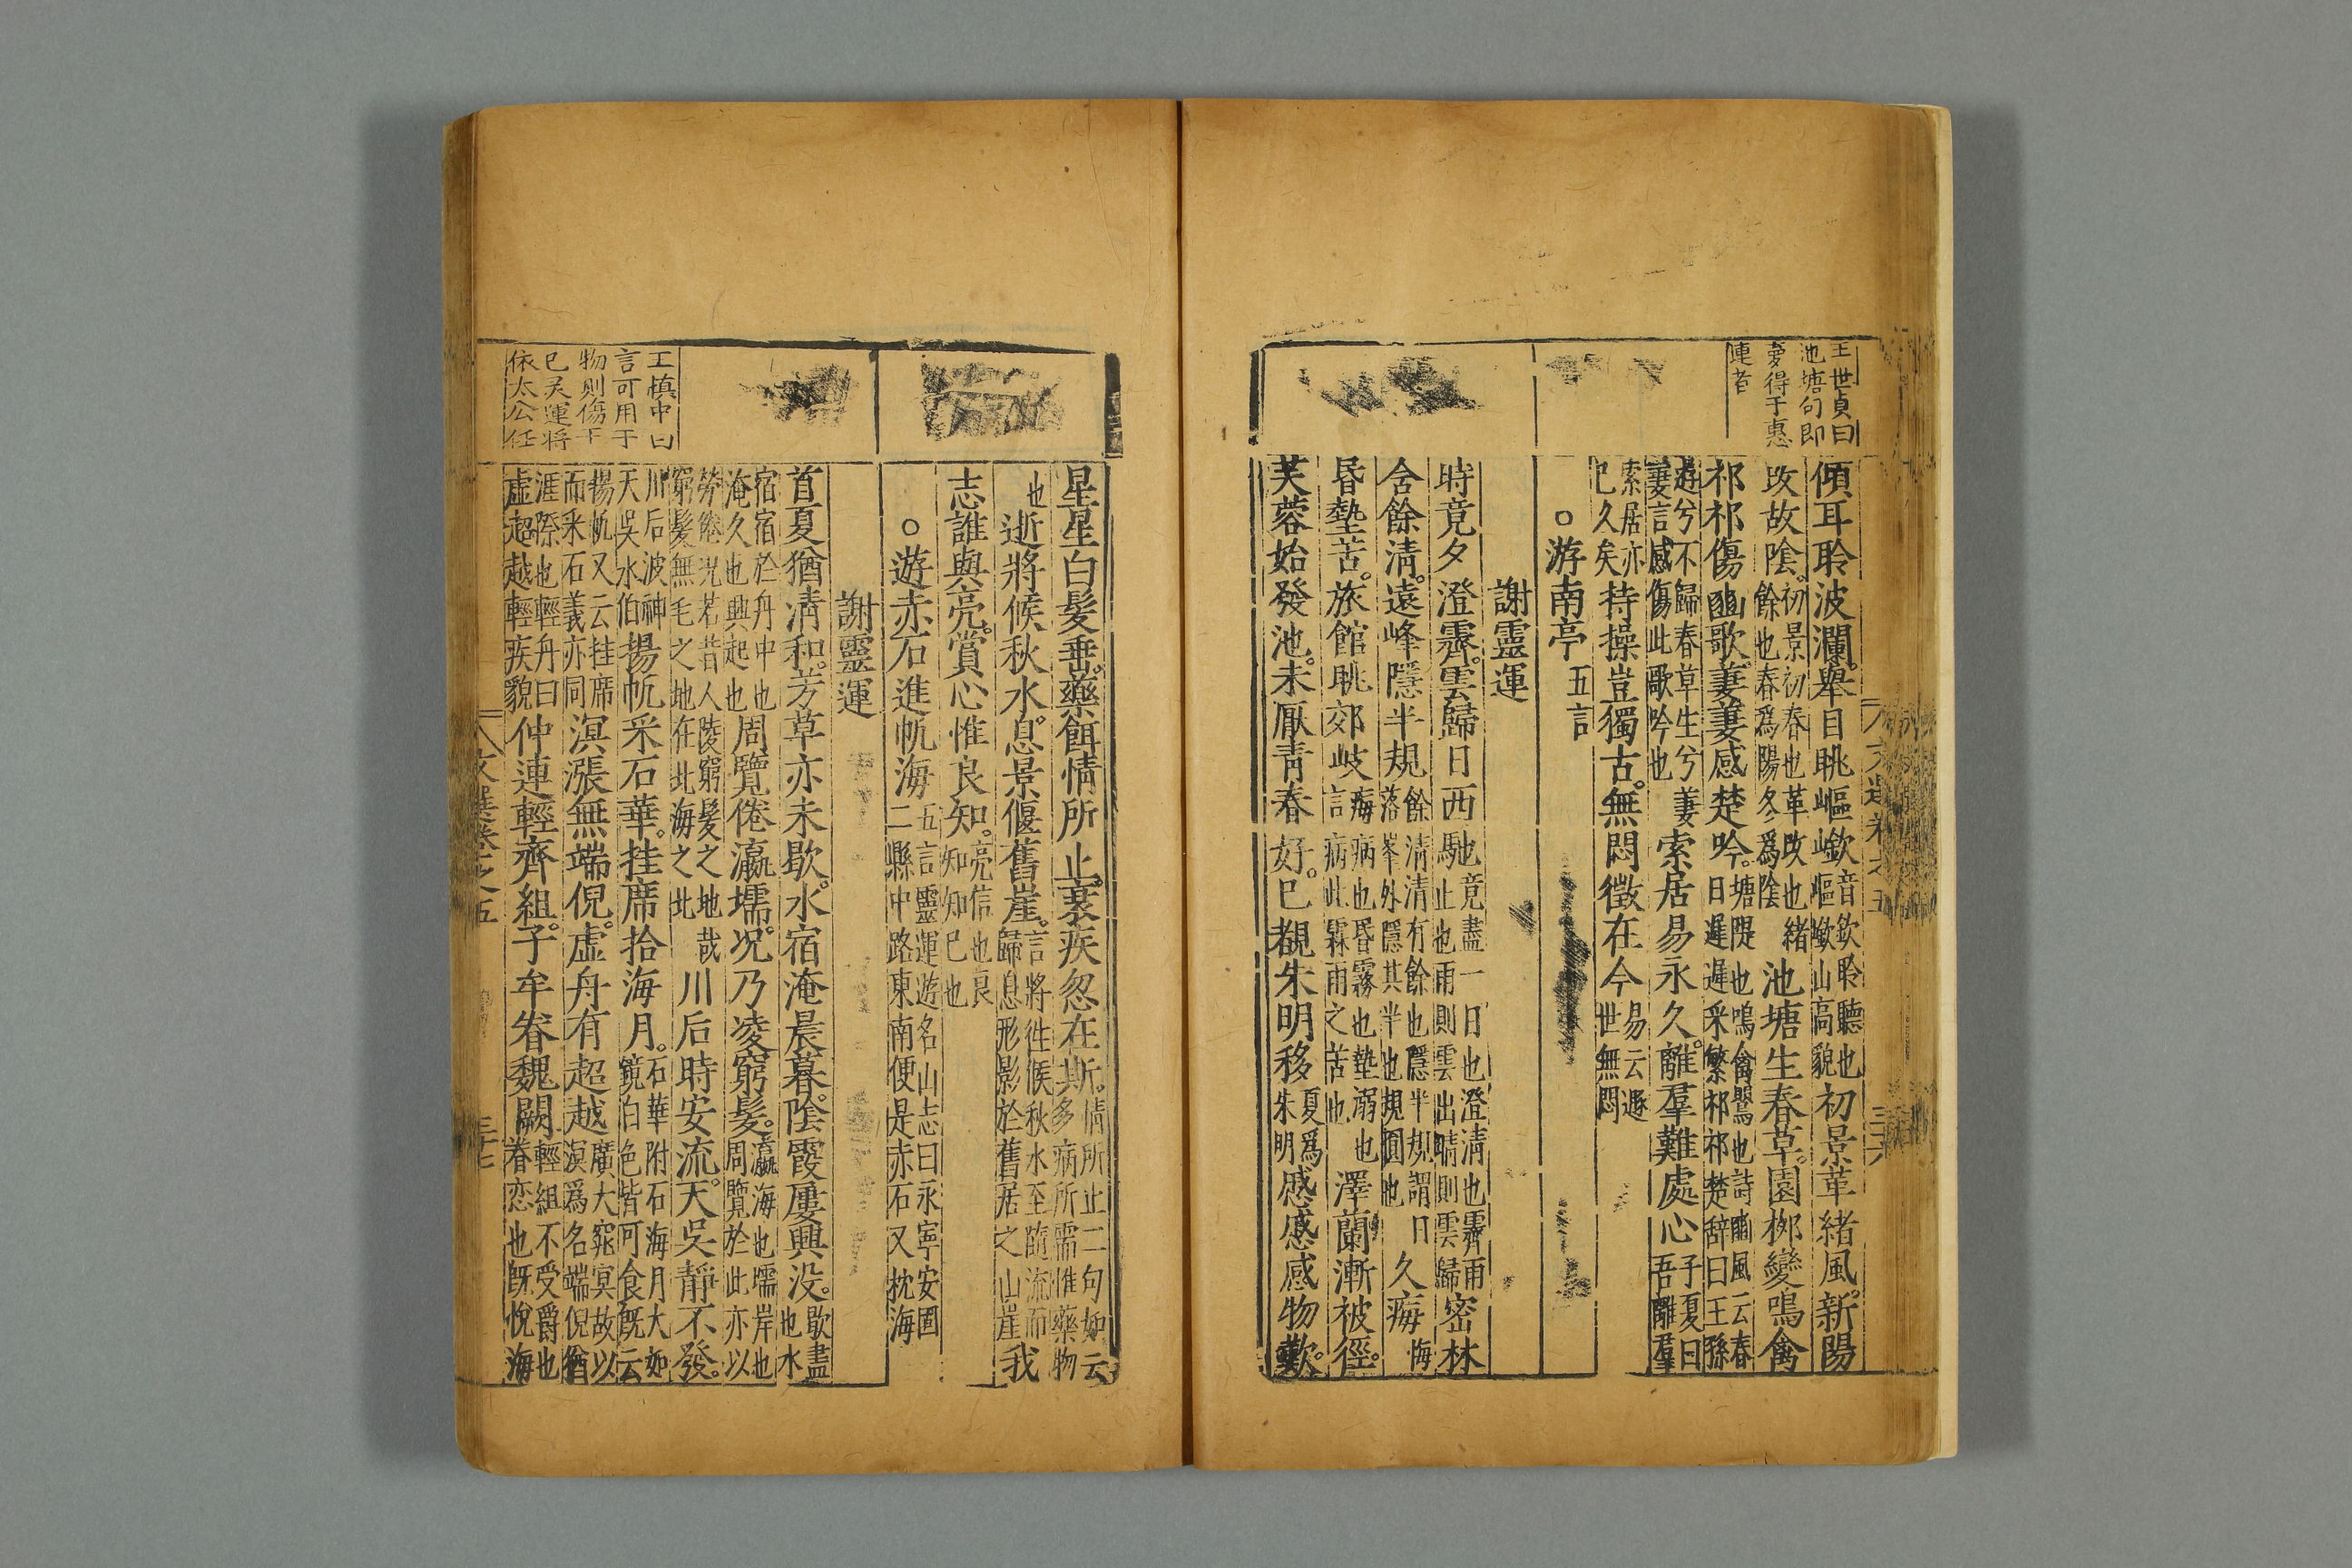 王世貞曰
池塘句即
夢得于惠
連者
傾耳聆波瀾。舉目眺嶇嶔音欽聆聽也嶇嶔山高貌初景革緒風。新陽
改故陰。初景初春也革改也緒餘也春爲陽冬爲陰池塘生春草。園柳變鳴禽
祁祁傷豳歌。萋萋感楚吟。塘隄也鳴禽鸎也詩豳風云春日遲遲采繁祁祁楚辭曰王孫
遊兮不歸春草生兮萋萋言感傷此歌吟也索居易永久。離羣難處心子夏曰吾離羣
索居亦已久矣持操豈獨古。無悶徵在今易云遯世無悶
○游南亭五言
謝靈運
時竟夕澄霽。雲歸日西馳竟盡一日也澄清也霽雨止也雨則雲出晴則雲歸密林
含餘清。遠峰隱半規餘清清有餘也隱半規謂日落峯外隱其半也規圓也久痗悔
昏墊苦。旅館眺郊岐痗病也昏霧也墊溺也言病此霖雨之苦也澤蘭漸被徑。
芙蓉始發池。未厭青春好。已覩朱明移夏爲朱明慼慼感物歎。
星星白髮垂。藥餌情所止。衰疾忽在斯。情所止二句如云多病所需惟藥物
也逝將候秋水。息景偃舊崖。言將徃候秋水至隨流而歸息形影於舊居之山崖我
志誰與亮。賞心惟良知。亮信也良知知已也
○遊赤石進帆海五言靈運遊名山志曰永寧安固二縣中路東南便是赤石又枕海
謝靈運
首夏猶清和。芳草亦未歇。水宿淹晨暮。陰霞屢興没。歇盡也水
宿宿於舟中也淹久也興起也周覽倦瀛壖。况乃凌窮髮。瀛海也壖岸也周覽於此亦以
勞倦况若昔人陵窮髮之地哉窮髮無毛之地在北海之北川后時安流。天吳靜不發。
川后波神天吳水伯揚帆采石華。挂席拾海月。石華附石海月大如鏡白色皆可食旣云
揚帆又云挂席而采石義亦同溟漲無端倪。虛舟有超越廣大窕冥故以溟爲名端倪猶
涯際也輕舟曰虛超越輕疾貌仲連輕齊組。子牟眷魏闕輕組不受爵也眷恋也旣悅海
王愼中曰
言可用于
物則傷于
已灵運將
依太公任
文選卷之五
三十七